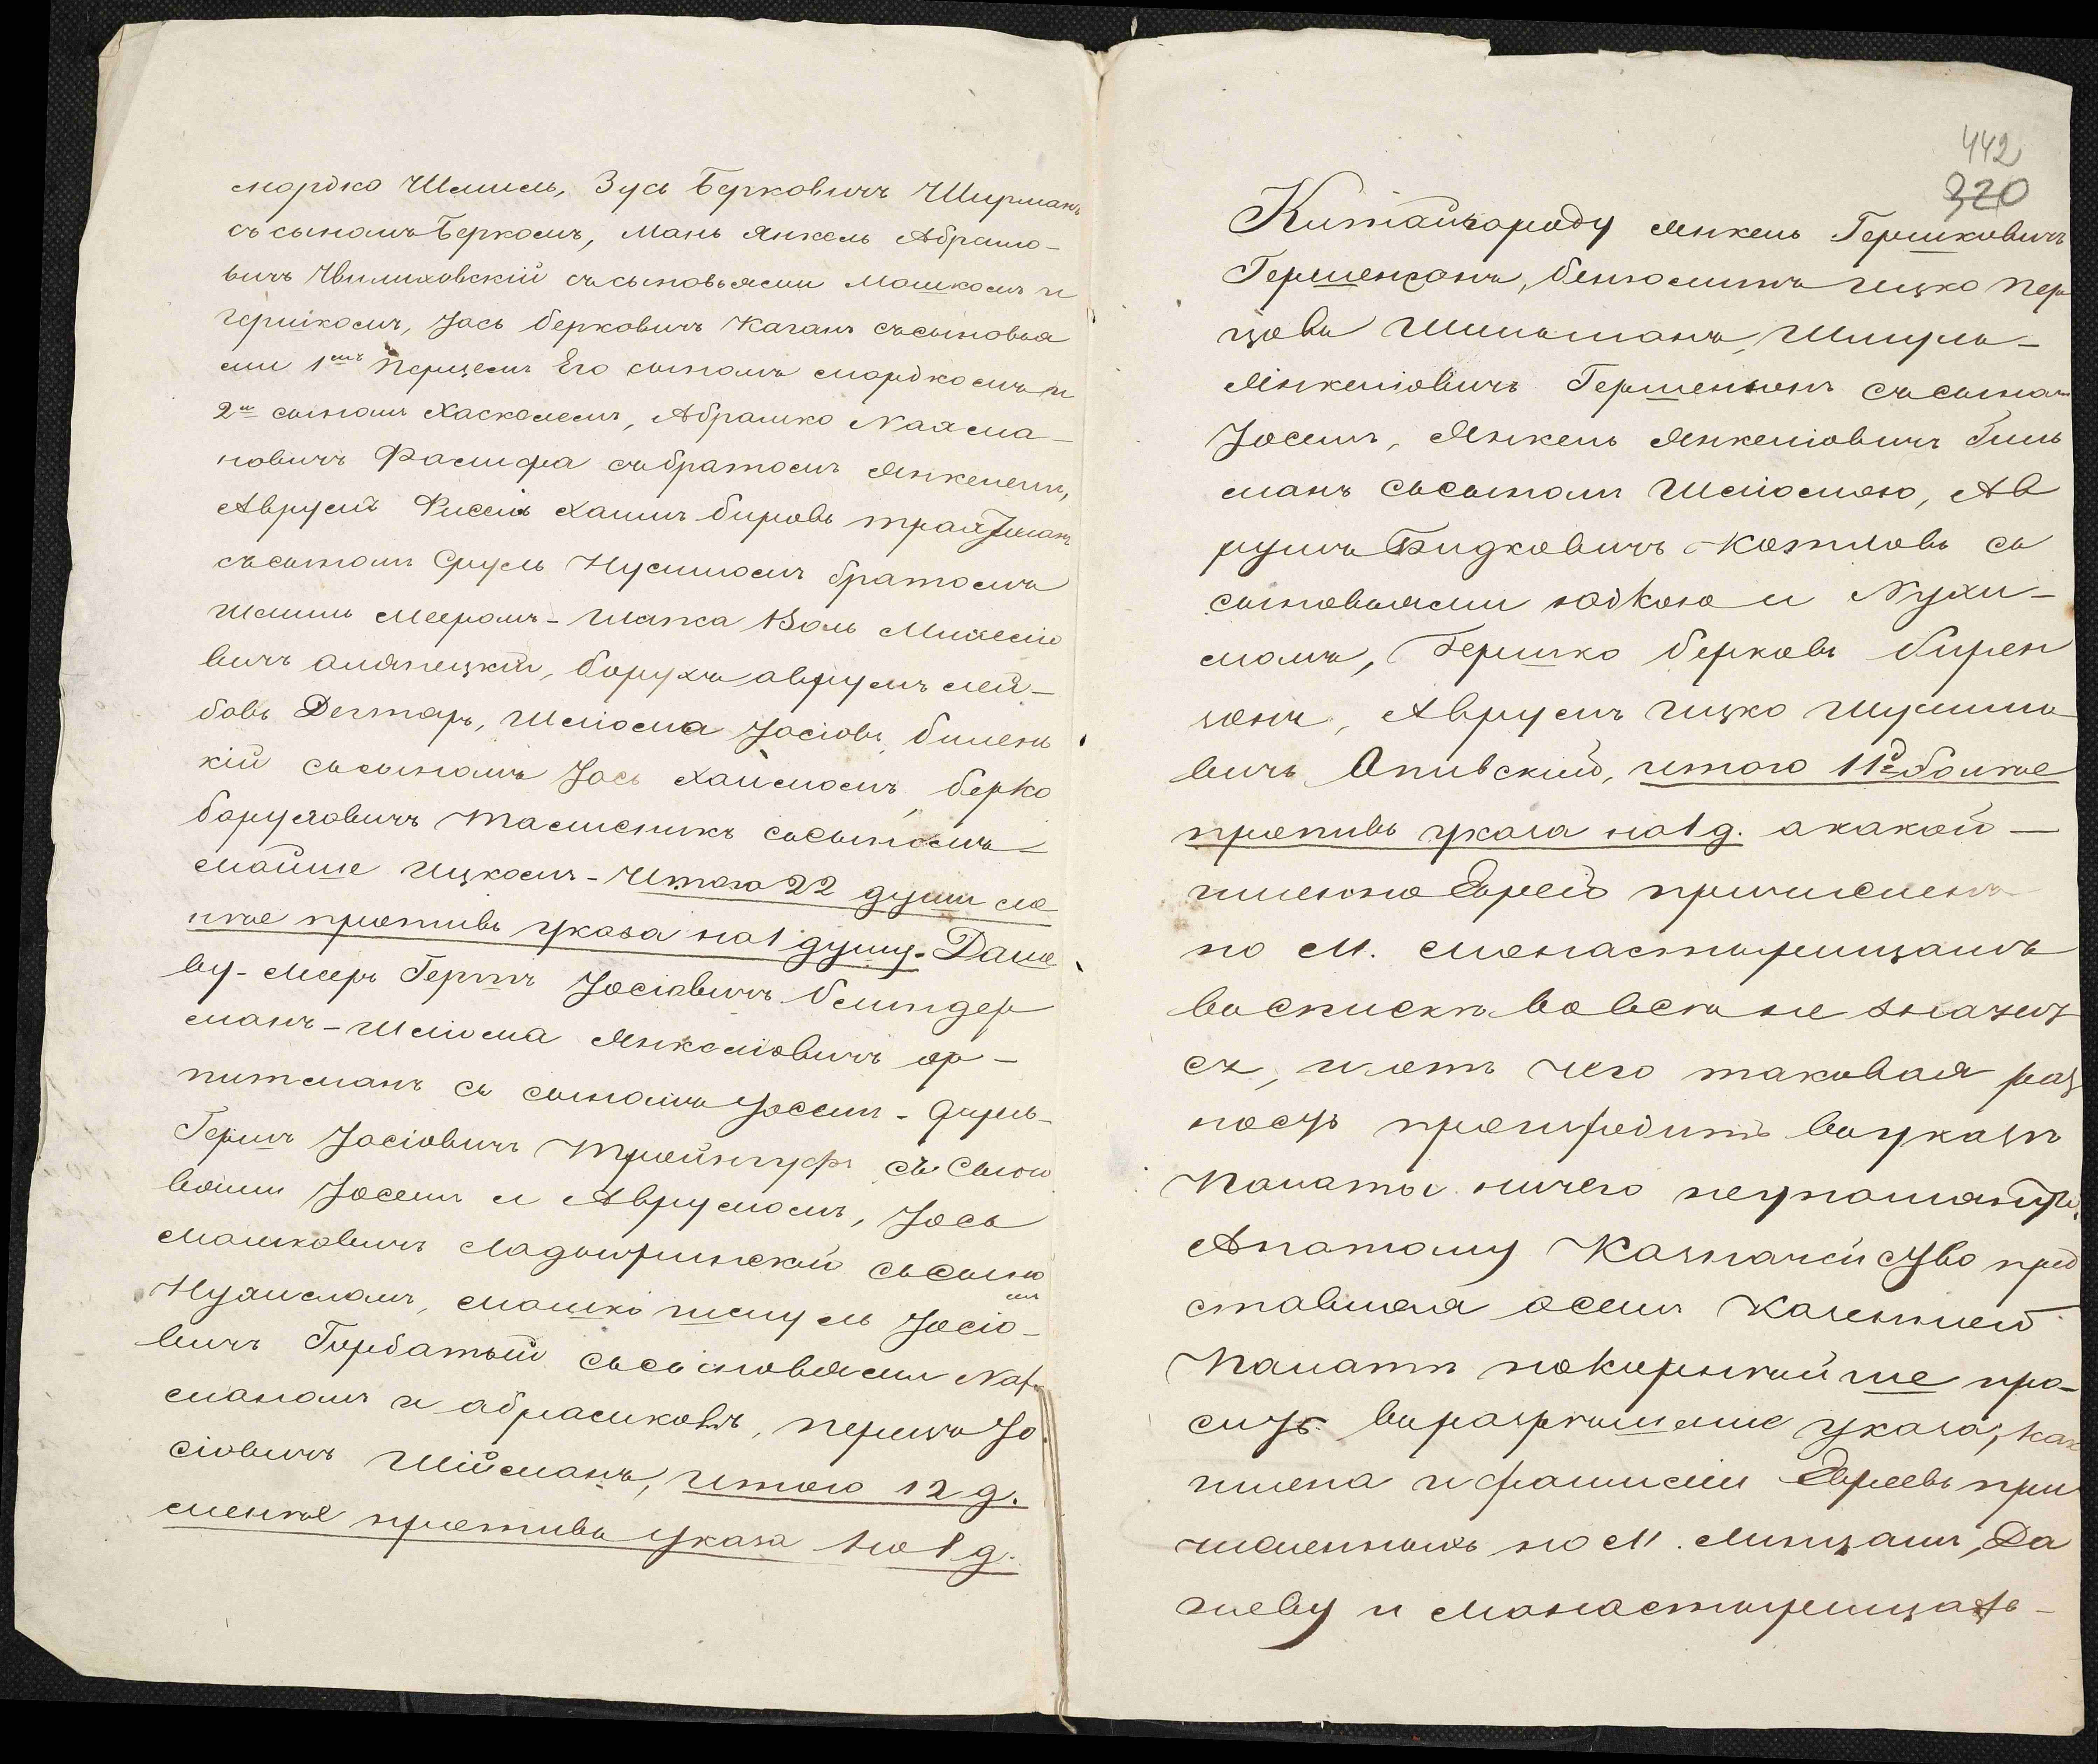 мордко Шмилъ, Зусь Берковичъ Ширманъ
съ сыномъ Беркомъ, Мань Янкель Абрамо-
вичъ Чвилиховскій съ сыновьями Мошкомъ и
Гершкомъ, Іось Берковичъ Каганъ съ сыновья
ми 1мъ Перцемъ Его сыномъ мордкомъ и
2м сыномъ Хаскелемъ, Абрашко Нахма-
новичъ съ братомъ Янкелемъ,
Аврумъ Хаимъ
съ сыномъ Сруль Нусимомъ братомъ
Шмиль Мееромъ - Шапса Воль
вичъ, Борухъ Аврумъ лей-
бовъ Дегтяръ, Шліома Іосіовъ билень
кій съ сыномъ Іось Хаймомъ, берко
боруховичъ съ сыномъ
мойше ицкомъ - Итого 22 души ме
нѣе противъ указа на 1 душу. - Даше
ву - Мееръ Гершъ Іосіовичъ Блиндер
манъ - Шліома Янкеліовичъ ор-
питманъ съ сыномъ Іосемъ - Сруль
Гершъ Іосіовичъ съ сыно
вьями Іосемъ и Аврумомъ, Іось
Мошковичъ Ладыжинскій съ сыно
мъ
Нухимомъ, мошко шмуль Іосіо-
вичъ Горбатый съ сыновьями Нах
маномъ и абрамкомъ, перецъ Іо
сіовичъ Шійманъ, итого 12 д.
менѣе противъ указа на 1 д.
442
320
Китайгороду Янкель Гершковичъ
Гершензонъ, беньоминъ ицко пер
цовъ Шильманъ, Шмуль-
Янкеліовичъ Гершензонъ съ сыномъ
Іосемъ, Янкель Янкеліовичъ биль
манъ съ сыномъ Шліомою, Ав
румъ Котловъ съ
сыновьями юдкою и Нухи-
момъ, Гершко берковъ бирен
зонъ, Аврумъ ицко Шулимо
вичъ Опивскій, итого 11 д. болѣе
противъ указа на 1 д. а какой -
именно Еврей причисленъ
по М. Монастырищамъ
въ спискѣ вовсе не значит
ся, и отъ чего таковая раз
ность происходитъ въ указѣ
Палаты ничего неупомянуто.
А потому Казначейство пред
ставляя о семъ Казенной
Палатѣ покорнѣйше про-
ситъ въ разрѣшеніе указа, какъ
имена и фамиліи Евреевъ при
численныхъ по М. Линцамъ, Да
шеву и Монастырищамъ -